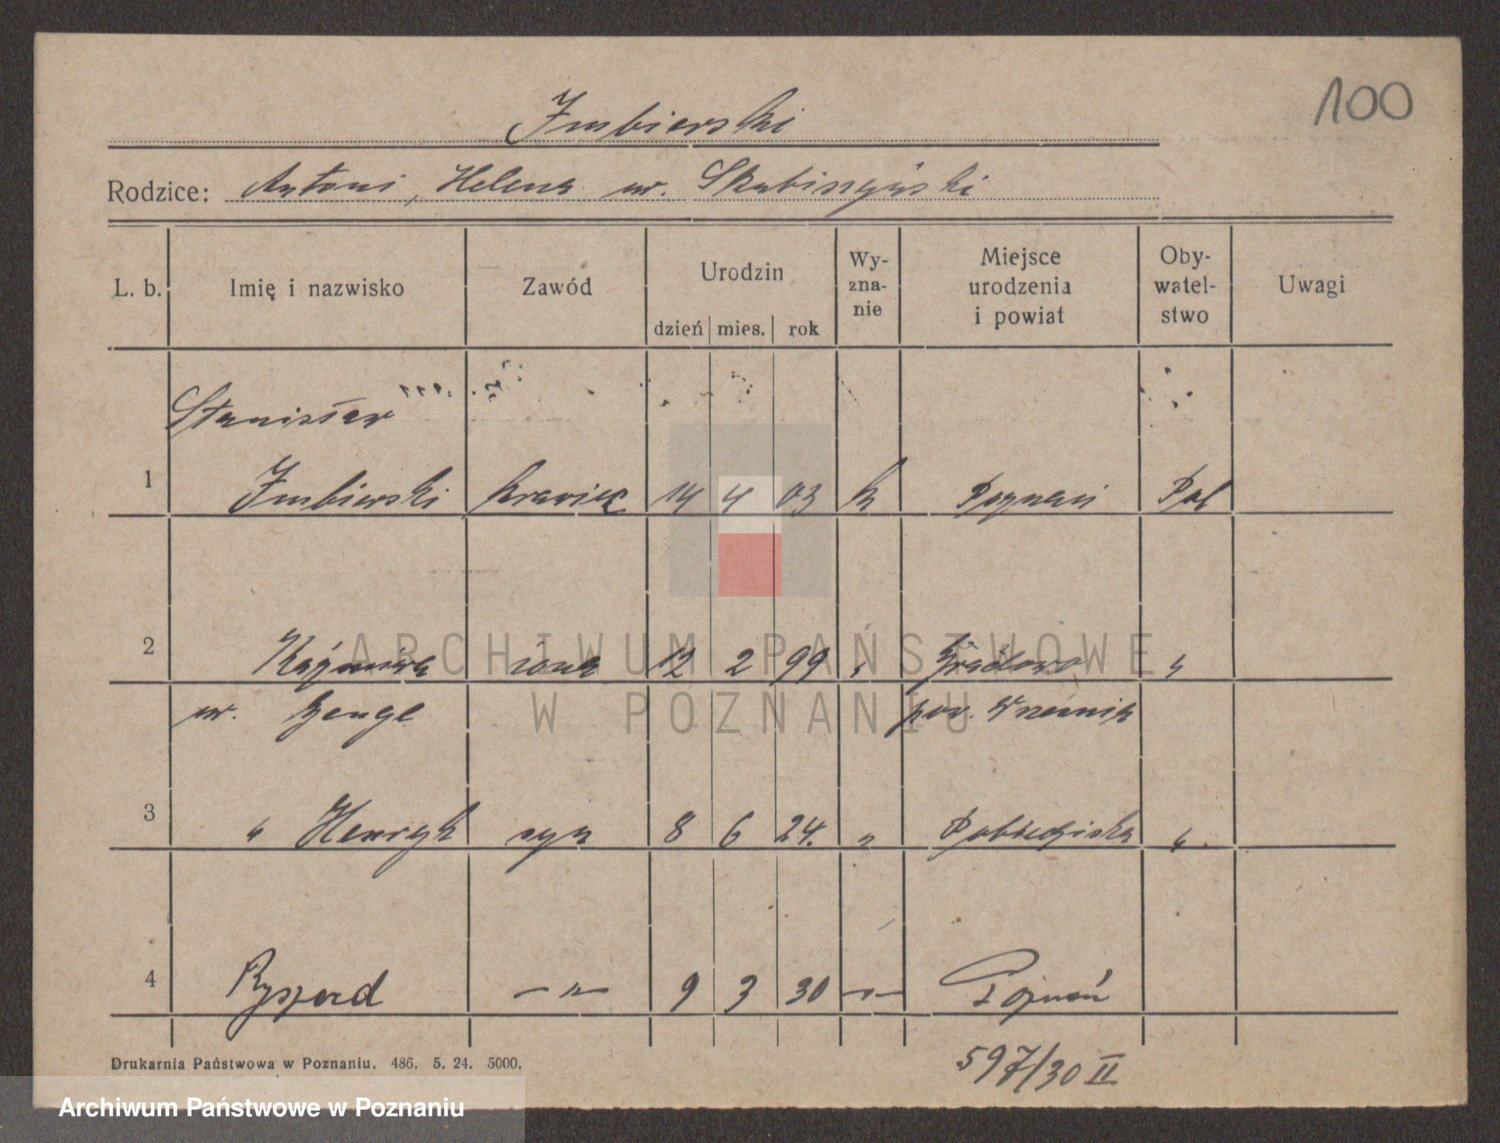 100
Imbierski
Rodzice: Antoni, Helena ur. Skubiszyński
L. b. Imię i nazwisko Zawód Urodzin dzień mies. rok Wy-zna-nie Miejsce urodzenia i powiat Oby-watel-stwo Uwagi
Stanisław
1 Imbierski krawiec 14 4 03 k Poznań Pol
2 Kaźmira żona 12 2 99 " "
ur. pow. Września
3 " Henryk syn 8 6 24. " Pobiedziska "
4 Ryszard —"— 9 3 30 —"— Poznań
597/30 II
Drukarnia Państwowa w Poznaniu. 486. 5. 24. 5000.
ARCHIWUM PAŃSTWOWE
W POZNANIU
Archiwum Państwowe w Poznaniu